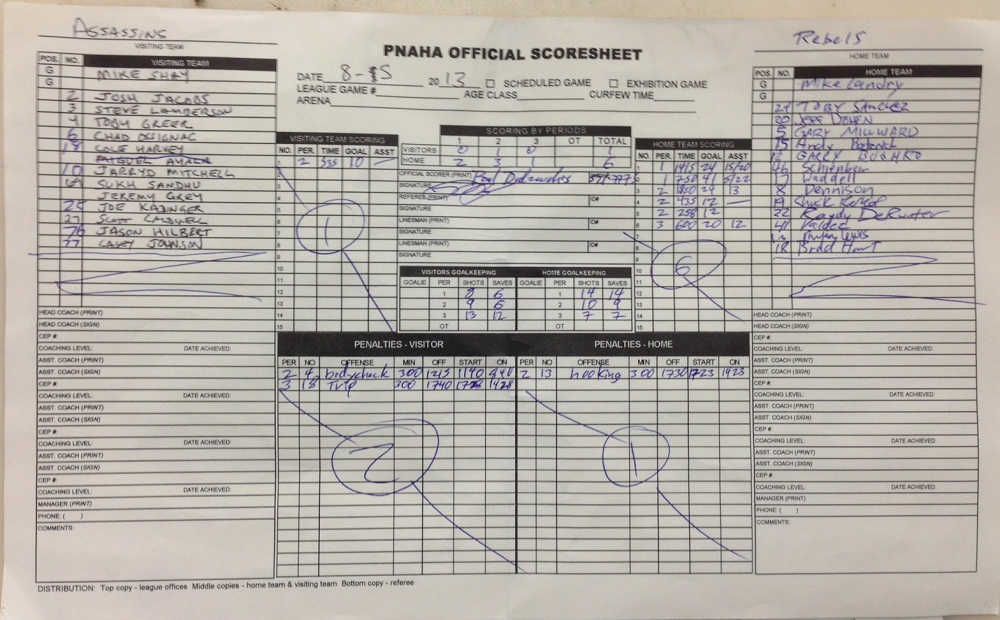 ASSASSINS
VISITING TEAM
Rebels
HOME TEAM
PNAHA OFFICIAL SCORESHEET
DATE 8-15 2013 SCHEDULED GAME EXHIBITION GAME
LEAGUE GAME # AGE CLASS CURFEW TIME
ARENA
POS. NO. VISITING TEAM
G MIKE SHAY
G
2 JOSH JACOBS
3 STEVE LAMBERSON
4 TOBY GREER
6 CHAD OSSIGNAC
18 COLE HARVEY
MIGUEL AMAYA
10 JARRYD MITCHELL
69 SUKH SANDHU
JEREMY GREY
25 JOE KADINGER
27 SCOTT CALDWELL
76 JASON HILBERT
77 CASEY JOHNSON
HEAD COACH (PRINT)
HEAD COACH (SIGN)
CEP #:
COACHING LEVEL: DATE ACHIEVED:
ASST. COACH (PRINT)
ASST. COACH (SIGN)
CEP #:
COACHING LEVEL: DATE ACHIEVED:
ASST. COACH (PRINT)
ASST. COACH (SIGN)
CEP #:
COACHING LEVEL: DATE ACHIEVED:
ASST. COACH (PRINT)
ASST. COACH (SIGN)
CEP #:
COACHING LEVEL: DATE ACHIEVED:
MANAGER (PRINT)
PHONE ( )
COMMENTS:
VISITING TEAM SCORING
NO. PER. TIME GOAL ASST
1 2 535 10 -
2
3
4
5
6
7
8
9
10
11
12
13
14
15
1
SCORING BY PERIODS
1 2 3 OT TOTAL
VISITORS 0 1 0 1
HOME 2 3 1 6
OFFICIAL SCORER (PRINT) Paul
SIGNATURE
REFEREE (PRINT) C#
SIGNATURE
LINESMAN (PRINT) C#
SIGNATURE
LINESMAN (PRINT) C#
SIGNATURE
VISITORS GOALKEEPING HOME GOALKEEPING
GOALIE PER SHOTS SAVES GOALIE PER SHOTS SAVES
1 8 6 1 14 14
2 9 6 2 10 9
3 13 12 3 7 7
OT OT
HOME TEAM SCORING
NO. PER. TIME GOAL ASST
1 1 1415 24 15/20
2 1 750 41 5/22
3 2 1850 24 13
4 2 435 12 —
5 2 258 12
6 3 600 20 12
7
8
9
10
11
12
13
14
15
6
POS. NO. HOME TEAM
G Mike Landry
G
24 TOBY SANCHEZ
20 JEFF DEHEN
5 GARY MILLWARD
15 Andy
12 GARRY BUSHKO
46
17 Waddell
8 Dennison
19 Chuck
22 Randy DeRuiter
41 Valdez
18 Brad Hunt
HEAD COACH (PRINT)
HEAD COACH (SIGN)
CEP #:
COACHING LEVEL: DATE ACHIEVED:
ASST. COACH (PRINT)
ASST. COACH (SIGN)
CEP #:
COACHING LEVEL: DATE ACHIEVED:
ASST. COACH (PRINT)
ASST. COACH (SIGN)
CEP #:
COACHING LEVEL: DATE ACHIEVED:
ASST. COACH (PRINT)
ASST. COACH (SIGN)
CEP #:
COACHING LEVEL: DATE ACHIEVED:
MANAGER (PRINT)
PHONE ( )
COMMENTS:
PENALTIES - VISITOR PENALTIES - HOME
PER NO OFFENSE MIN OFF START ON PER NO OFFENSE MIN OFF START ON
2 4 bodychuck 300 1215 1140 840 2 13 hooking 300 1730 1723 1423
3 18 Trip 300 1740 1728 1428
2
1
DISTRIBUTION: Top copy - league offices Middle copies - home team & visiting team Bottom copy - referee